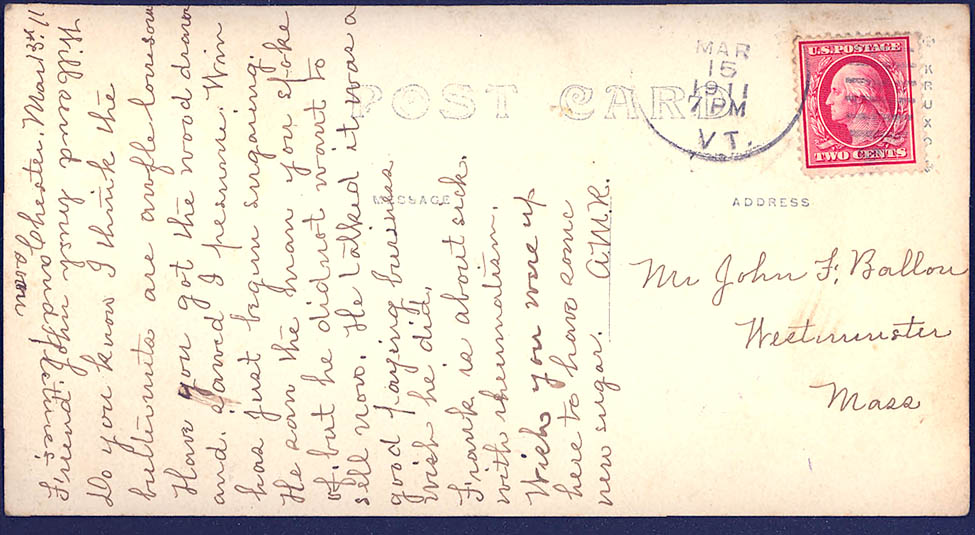 POST CARD
MESSAGE
ADDRESS
MAR
15
1911
7 PM
VT.
U.S. POSTAGE
TWO CENTS
Chester. Mar 13th 11
Friend John
Do you know I think the
are awful lonesom
Have you got the wood drawn
and sawed I presume. Win
has just begun sugaring.
He saw the man you spoke
of, but he did not want to
sell now. He talked it was a
good paying business
wish he did.
Frank is about sick.
with rheumatism.
Wish you were up
here to have some
new sugar. A.M.R.
Mr John F. Ballou
Westminster
Mass